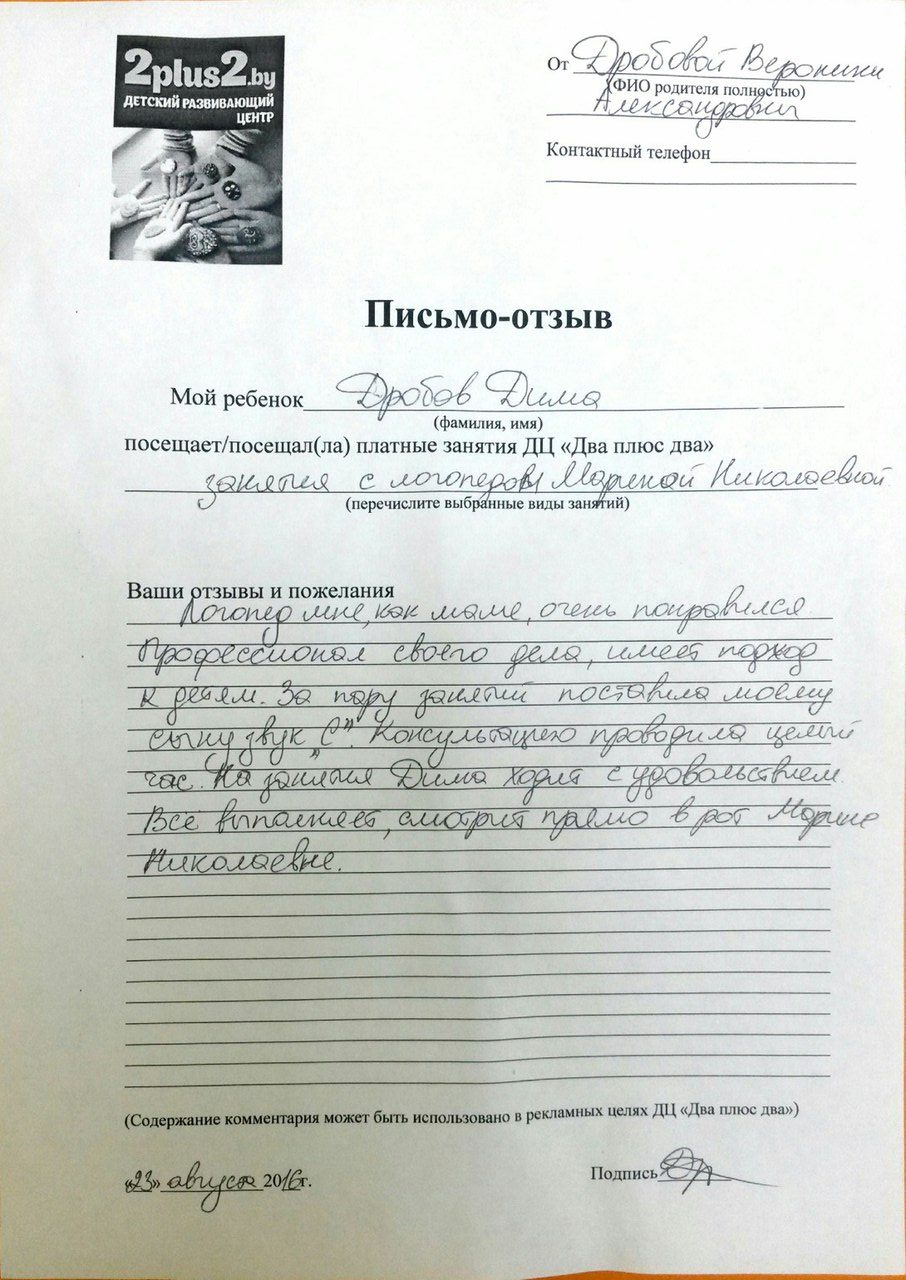 2plus2.by
ДЕТСКИЙ РАЗВИВАЮЩИЙ
ЦЕНТР
От Дробовой Вероники
(ФИО родителя полностью)
Александровны
Контактный телефон
Письмо-отзыв
Мой ребенок Дробов Дима
(фамилия, имя)
посещает/посещал(ла) платные занятия ДЦ «Два плюс два»
занятия с логопедом Мариной Николаевной
(перечислите выбранные виды занятий)
Ваши отзывы и пожелания
Логопед мне, как маме, очень понравился
Профессионал своего дела, имеет подход
к детям. За пару занятий поставила моему
сыну звук „С". Консультацию проводила целый
час. На занятия Дима ходит с удовольствием.
Всё выполняет, смотрит прямо в рот Марине
Николаевне.
(Содержание комментария может быть использовано в рекламных целях ДЦ «Два плюс два»)
«23» августа 2016г.
Подпись